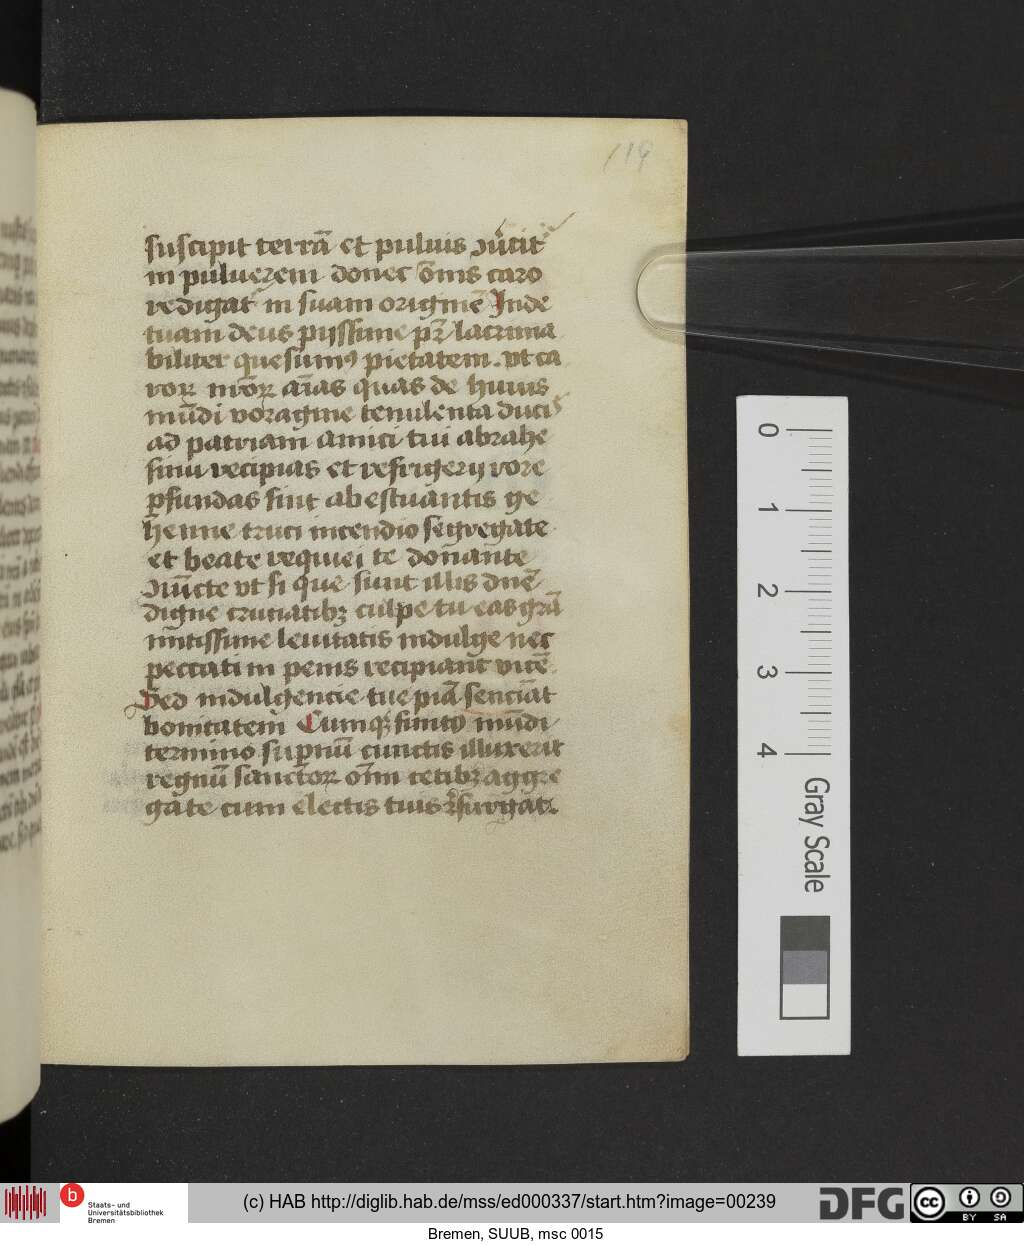 119
suscipit terrā et puluis
in puluerem donec ōnis caro
redigat in suam originē Inde
tuam deus pijssime pr̄ lacrima
biliter quesumꝰ pietatem. vt ea
roꝝ nr̄oꝝ aīas quas de huius
mūdi voragine tenulenta ducis
ad patriam amici tui abrahe
sinu recipias et refrigerij rore
pfundas sint ab estuantis ge
henne truci incendio segregate
et beate requiei te donante
ɔiūcte vt si que sunt illis dnē
digne cruciatibꝫ culpe tu eas grā
mitissime lenitatis indulge nec
peccati in penis recipiant vicē
Sed indulgencie tue piā senciāt
bonitatem Cumqꝫ finito mūdi
termino supnū cunctis illuxerit
regnū sanctoꝝ oīm cetibꝫ aggre
gate cum electis tuis
0
1
2
3
4
Gray Scale
b
Staats- und
Universitätsbibliothek
Bremen
(c) HAB http://diglib.hab.de/mss/ed000337/start.htm?image=00239
DFG
cc
BY SA
Bremen, SUUB, msc 0015